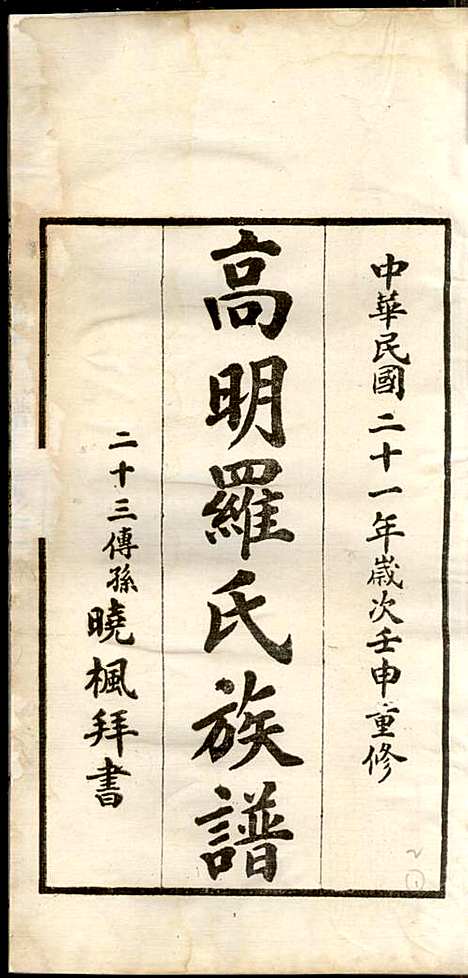 中華民國二十一年歲次壬申重修
高明羅氏族譜
二十三傳孫曉楓拜書
2
1